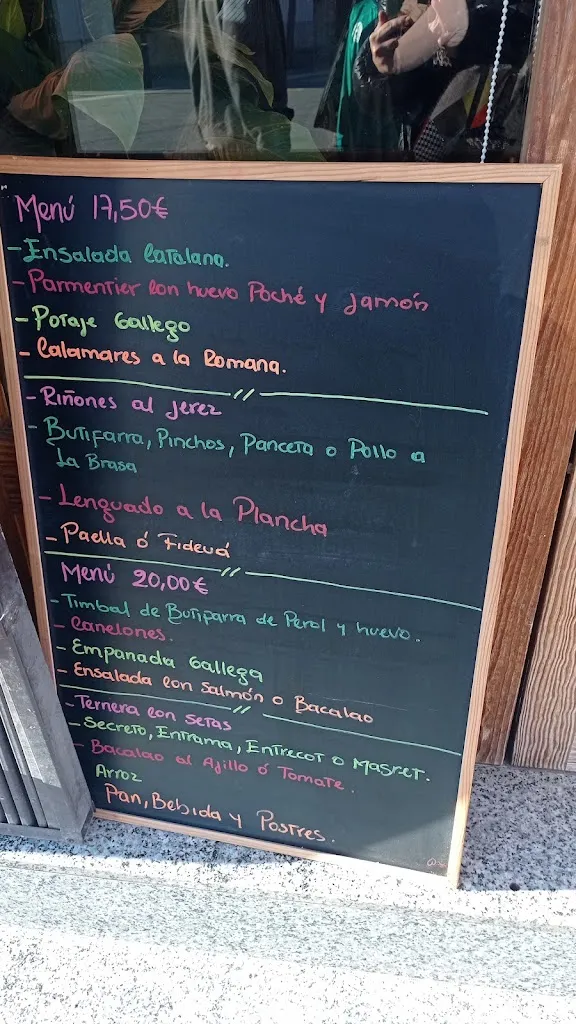 Menú 17,50€
- Ensalada Catalana.
- Parmentier con huevo Poché y Jamón
- Potaje Gallego
- Calamares a la Romana.
- Riñones al Jerez
- Butifarra, Pinchos, Panceta o Pollo a
La Brasa
- Lenguado a la Plancha
- Paella ó Fideuá
Menú 20,00€
- Timbal de Butiparra de Perol y huevo.
- Canelones.
- Empanada Gallega
- Ensalada con Salmón o Bacalao
- Ternera con setas
- Secreto, Entrama, Entrecot o Magret.
- Bacalao al Ajillo ó Tomate.
Arroz
Pan, Bebida y Postres.